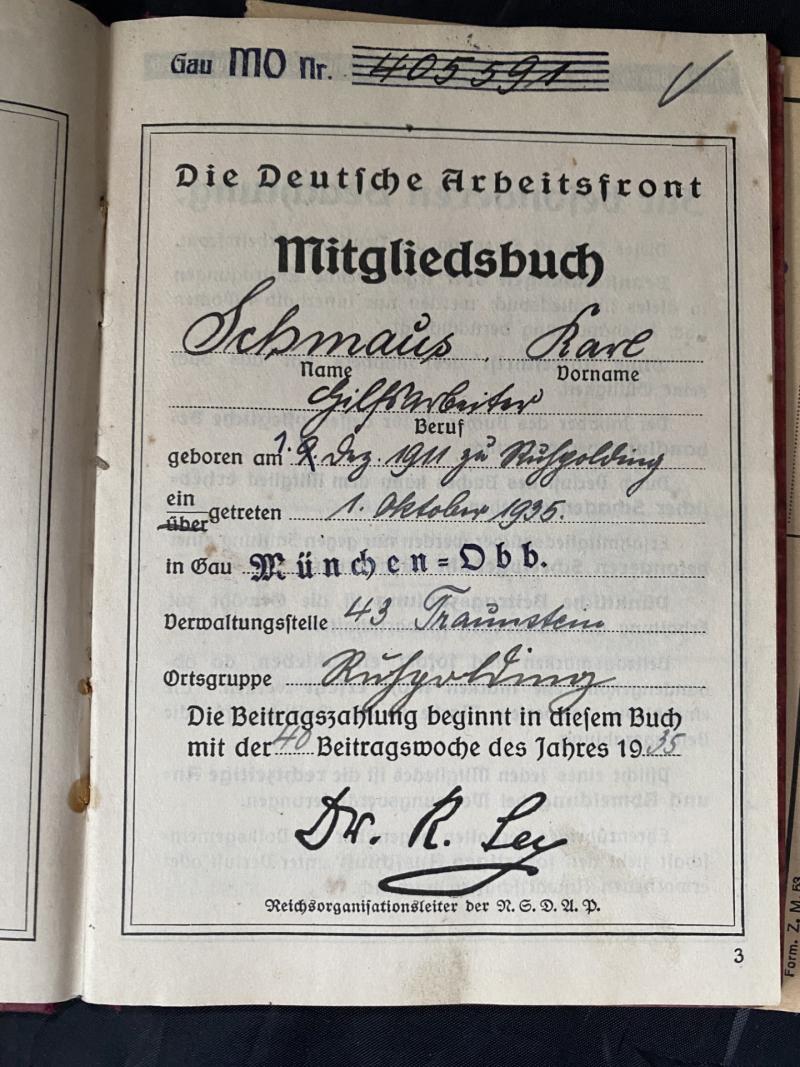 Gau MO Nr. 405591
Die Deutsche Arbeitsfront
Mitgliedsbuch
Schmaus, Karl
Name Vorname
Hilfsarbeiter
Beruf
geboren am 1. Dez. 1911 zu Ruhpolding
ein
über
getreten 1. Oktober 1935.
in Gau München=Obb.
Verwaltungsstelle 43 Traunstein
Ortsgruppe Ruhpolding
Die Beitragszahlung beginnt in diesem Buch
mit der 40 Beitragswoche des Jahres 1935
Dr. R. Ley
Reichsorganisationsleiter der N.S.D.A.P.
3
Form. Z. M 53